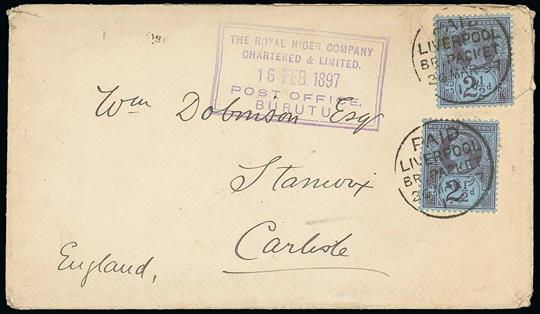 THE ROYAL NIGER COMPANY
CHARTERED & LIMITED.
16 FEB. 1897
POST OFFICE,
BURUTU.
LIVERPOOL
BR. PACKET
2½d
PAID
LIVERPOOL
BR. PACKET
POSTAGE REVENUE
2½d
Wm Dobinson Esqr
Stanwix
Carlisle
England,